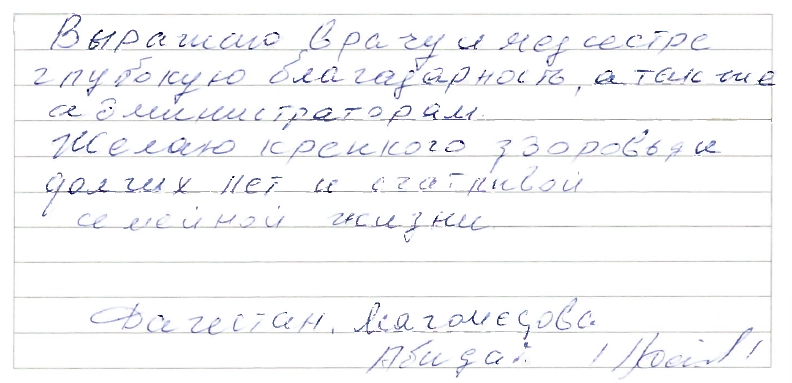 Выражаю врачу и медсестре
глубокую благадарность, а так же
администраторам.
Желаю крепкого здоровья и
долгих лет и счастливой
семейной жизни.
Дагестан. Магомедова
Абидат